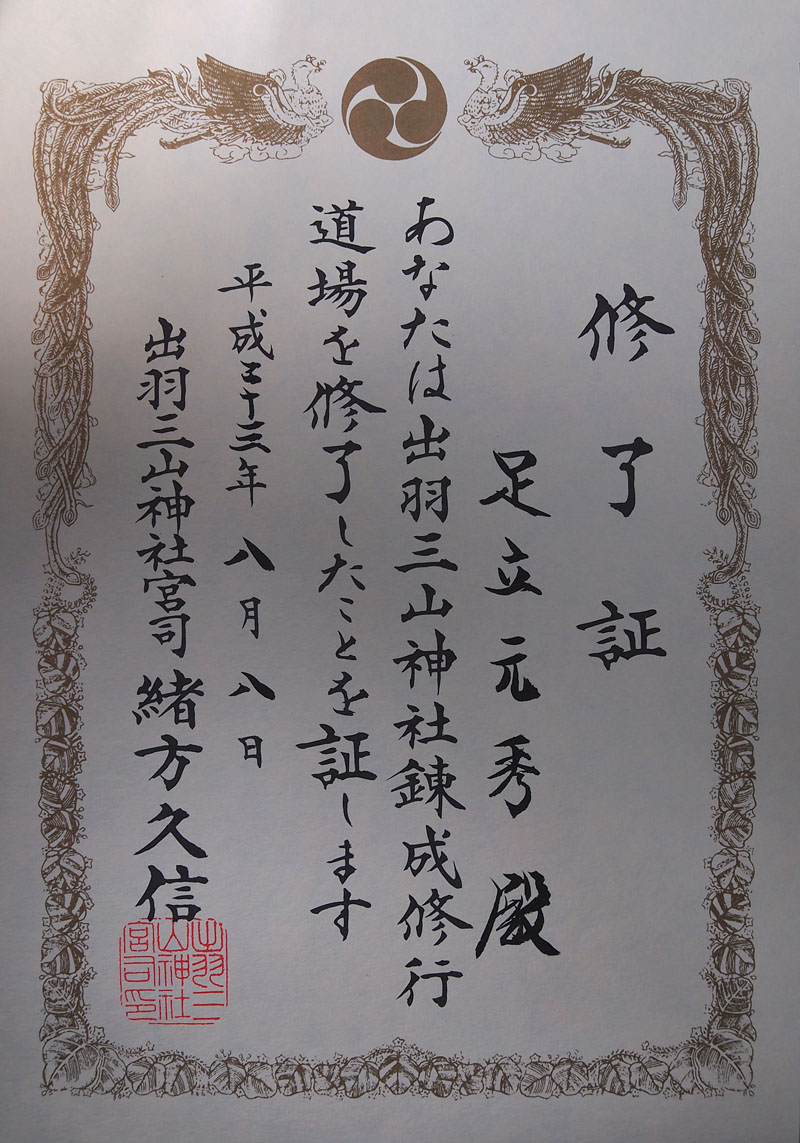 修了証
足立元秀殿
あなたは出羽三山神社錬成修行
道場を修了したことを証します
平成二十三年八月八日
出羽三山神社宮司 緒方久信
出羽三
山神社
宮司印